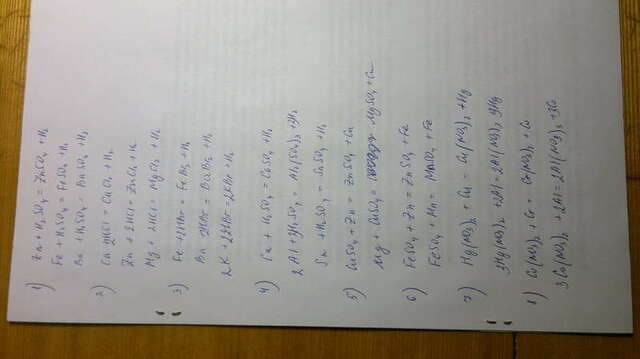 1) Zn + H₂SO₄ = ZnSO₄ + H₂
Fe + H₂SO₄ = FeSO₄ + H₂
Ba + H₂SO₄ = BaSO₄ + H₂
2) Ca + 2HCl = CaCl₂ + H₂
Zn + 2HCl = ZnCl₂ + H₂
Mg + 2HCl = MgCl₂ + H₂
3) Fe + 2HBr = FeBr₂ + H₂
Ba + 2HBr = BaBr₂ + H₂
2K + 2HBr = 2KBr + H₂
4) Ca + H₂SO₄ = CaSO₄ + H₂
2Al + 3H₂SO₄ = Al₂(SO₄)₃ + 3H₂
Sn + H₂SO₄ = SnSO₄ + H₂
5) CuSO₄ + Zn = ZnSO₄ + Cu
Mg + CuSO₄ = MgSO₄ + Cu
6) FeSO₄ + Zn = ZnSO₄ + Fe
FeSO₄ + Mn = MnSO₄ + Fe
7) Hg(NO₃)₂ + Cu = Cu(NO₃)₂ + Hg
3Hg(NO₃)₂ + 2Al = 2Al(NO₃)₃
8) Co(NO₃)₂
+ 2Al = 2Al(NO₃)₃